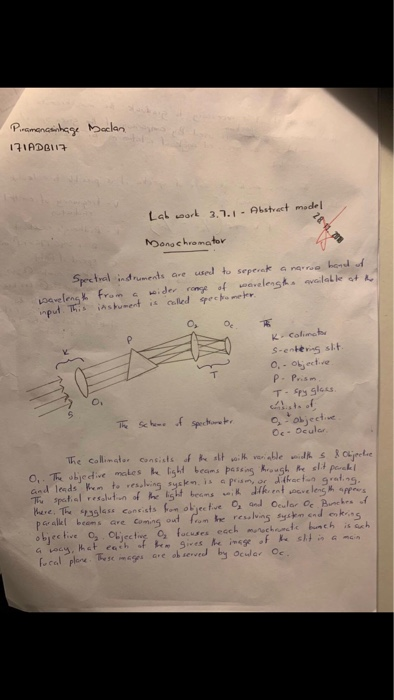 171ADB117
Lab work 3.7.1 - Abstract model
Monochromator
Spectral indruments are used to seperate a narrow band of
wavelength from a wider range of wavelengths available at the
input. This instument is called spectrometer.
K
P
O₂
Oc
T
O₁
S
The scheme of spectrometer
K - Colimator
S - entering slit
O₁ - Objective
P - Prism
T - Spy glass
consists of
O₂ - Objective
Oc - Ocular
The collimator consists of the slit with variable width S & Objective
O₁. The objective makes the light beams passing through the slit parallel
and leads them to resolving system, is a prism, or difraction grating.
The spatial resolution of the light beams with different wave length appears
here. The spyglass consists from objective O₂ and Ocular Oc. Bunches of
parallel beams are coming out from the resolving system and entering
objective O₂. Objective O₂ focuses each monochromatic bunch in such
a way, that each of them gives the image of the slit in a main
focal plane. These images are observed by Ocular Oc.